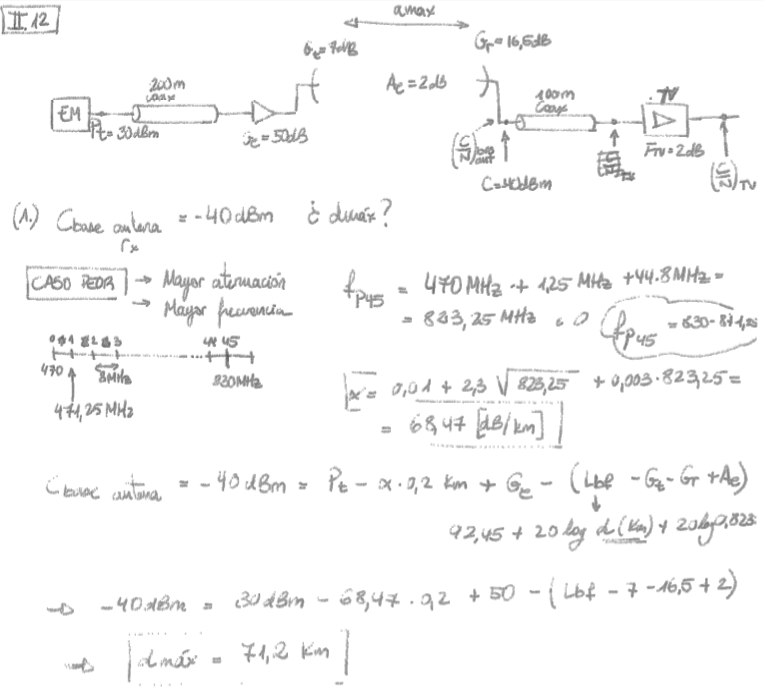 II.12
dmax
Gt=7dB
Gr=16,5dB
200m
coax
Ae=2dB
100m
Coax
TV
EM
Pt=30dBm
Gt=50dB
(C/N)
C=40dBm
FTV=2dB
(C/N)TV
(1.) Cbase antena rx = -40dBm ¿ dmáx?
CASO PEOR → Mayor atenuación
→ Mayor frecuencia
470
8MHz
830MHz
471,25 MHz
fP45 = 470MHz + 1,25 MHz + 44·8MHz =
= 823,25 MHz ó
fP45
x = 0,01 + 2,3 √823,25 + 0,003·823,25 =
= 68,47 [dB/km]
Cbase antena = -40dBm = Pt - x·0,2 km + Gt - (Lbf - Gt - Gr + Ae)
92,45 + 20 log d(km) + 20log0,823
→ -40dBm = 30dBm - 68,47·0,2 + 50 - (Lbf - 7 - 16,5 + 2)
→ dmáx = 71,2 Km